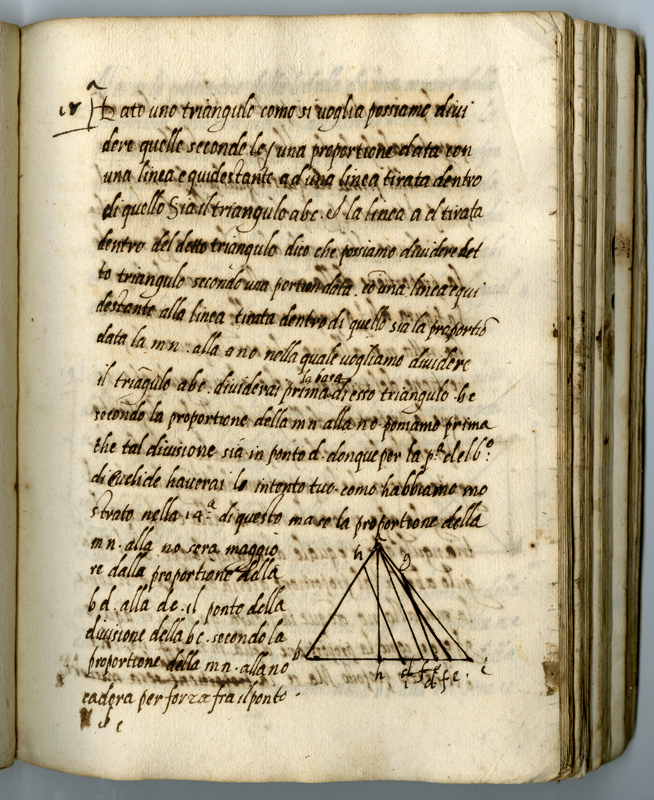 Dato uno triangulo como si voglia possiamo divi
dere quelle seconde le una proportione data con
una linea equidestante ad una linea tirata dentro
di quello Sia il triangulo abc. et la linea a d tirata
dentro del detto triangulo dico che possiamo dividere det
to triangulo secondo una portion data. cō una linea equi
destante alla linea tirata dentro di quello sia la proportiō
data la m n. alla a no nella quale vogliamo dividere
il triāgulo abc. dividerai prima la basa di esso triangulo. bc
secondo la proportione della m n alla n o poniamo prima
che tal divisione sia in ponto d. donque per la pᵃ del 6º.
di Euclide haverai lo intento tuo. como habbiamo mo
strato nella 14.ᵃ di questo ma se la proportione della
m n. alla no sera maggio
re dalla proportione dalla
b d. alla de. il ponto della
divisione della bc. secondo la
proportione della m n. alla no
cadera per forza fra il ponto
a
h g
b n d f e c